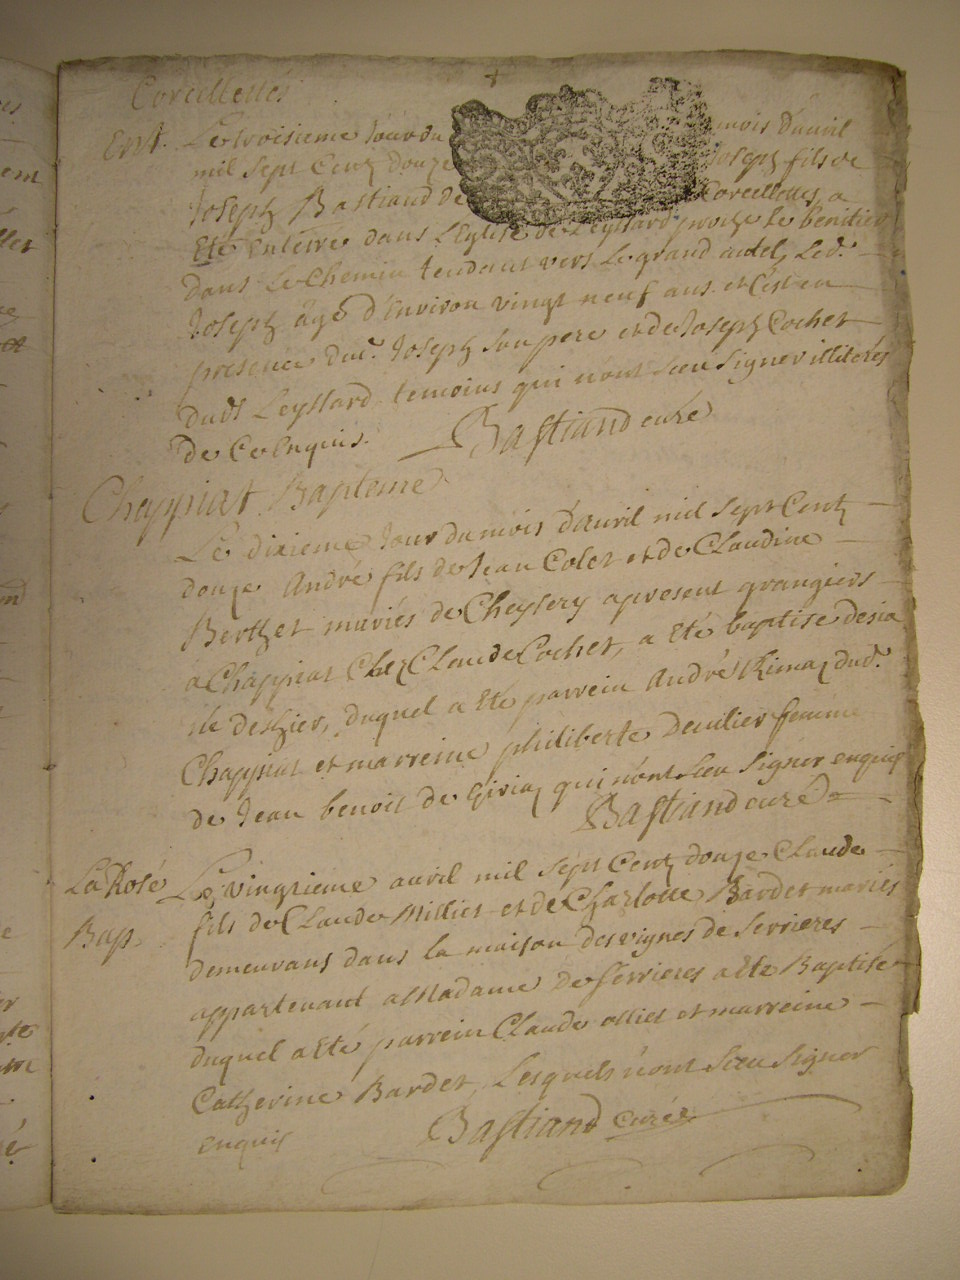 Corcelletes
Ent. Le troisieme Jour du mois d'avril
mil sept Centz douze Joseph fils de
Joseph Bastiand de Corcelletes a
Eté Enterre dans L'Eglise de Leyssard proche le benitier
dans Le Chemin tendant vers Le grand autel, Led.
Joseph âgé d'Environ vingt neuf ans et C'est en
presence dud. Joseph Son pere et de Joseph Cochet
dudt Leyssard temoins qui n'ont sceu Signer illiterés
de Ce Enquis. Bastiand curé
Chappiat Bapteme
Le dixieme Jour du mois d'avril mil sept Centz
douze André fils de Jean Colet et de Claudine
Berthet mariés de Cheysery apresent grangiers
a Chappiat Chez Claude Cochet, a Eté baptise
duquel a Eté parrein André dud.
Chappiat et marreine philiberte femme
de Jean benoit de qui n'ont sceu Signer enquis
Bastiand curé
La Rosé Le vingtieme avril mil sept Centz douze Claude
Bap. fils de Claude Milliet et de Charlotte Bardet mariés
demeurans dans la maison des vignes de Serrieres
appartenant a Madame de Serrieres a Eté Baptisé
duquel a Eté parrein Claude et marreine
Catherine Bardet, Lesquels n'ont Sceu Signer
enquis Bastiand curé